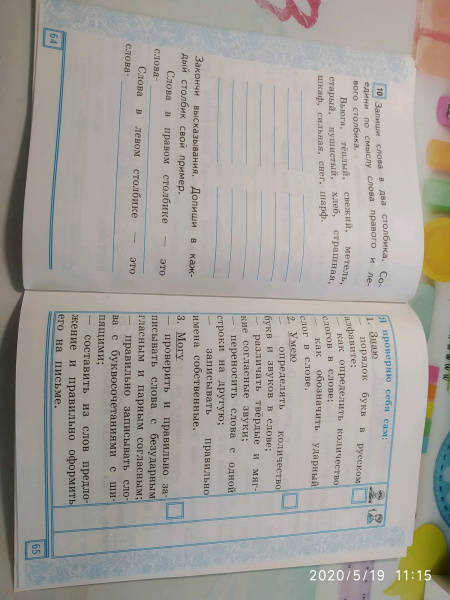 10 Запиши слова в два столбика. Со-
едини по смыслу слова правого и ле-
вого столбика.
Вьюга, тёплый, свежий, метель,
старый, пушистый, хлеб, страшная,
шкаф, сильная, снег, шарф.
Закончи высказывания. Допиши в каж-
дый столбик свой пример.
Слова в правом столбике — это
слова-
Слова в левом столбике — это
слова-
64
Я проверяю себя сам:
1. Знаю
порядок букв в русском
алфавите;
— как определить количество
слогов в слове;
— как обозначить ударный
слог в слове.
2. Умею
— определять количество
букв и звуков в слове;
— различать твёрдые и мяг-
кие согласные звуки;
— переносить слова с одной
строки на другую;
— записывать правильно
имена собственные.
3. Могу
— проверить и правильно за-
писывать слова с безударным
гласным и парным согласным;
— правильно записывать сло-
ва с буквосочетаниями с ши-
пящими;
— составить из слов предло-
жение и правильно оформить
его на письме.
65
2020/5/19 11:15